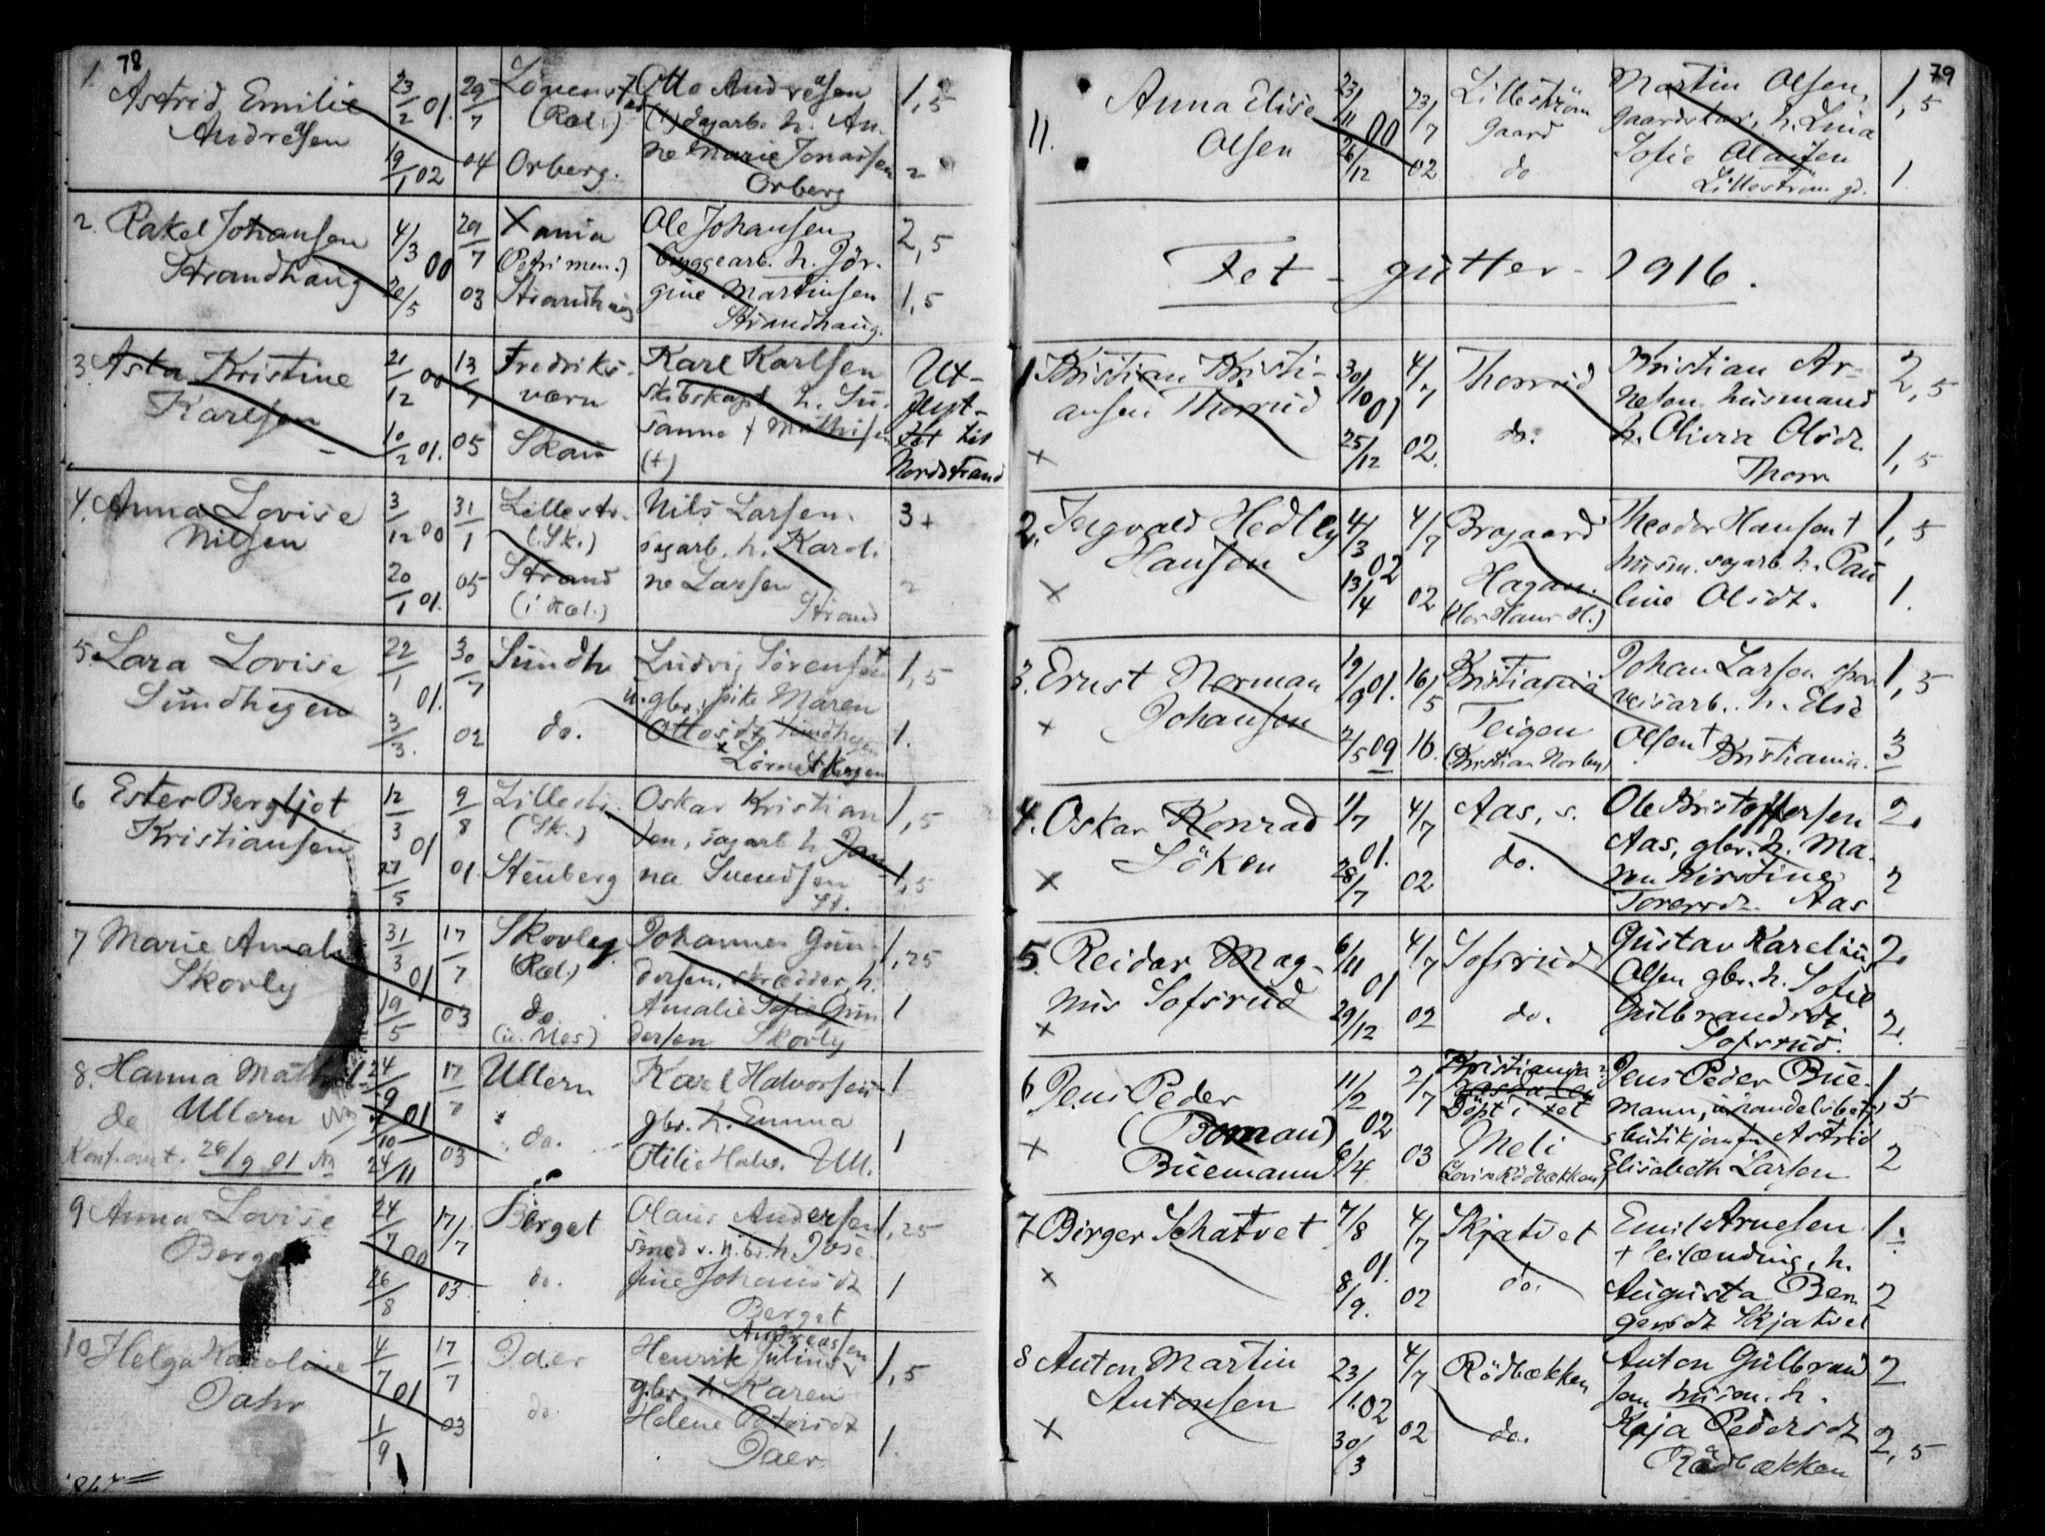 78
1. Astrid Emilie 23/2 01. 29/7 Otto Andreasen 1,5
Andreasen (Ræl.) (+) dagarb. h. An-
19/1 02 04 Orberg. ne Marie Jonassen 2
Orberg
2. Rakel Johansen 4/3 00 29/7 Xania Ole Johansen 2,5
Strandhaug (Petri men.) bryggearb. h. Jör-
20/5 03 Strandhaug gine Martinsen 1,5
Strandhaug.
3. Asta Kristine 21/12 00 13/7 Fredriks- Karl Karlsen Ut-
Karlsen værn skibskapt. h. Su- flyt-
10/2 01. 05 Skau sanne + Mathisen tet til
(+) Nordstrand
4. Anna Lovise 3/12 00 31/1 Lillestr. Nils Larsen 3+
Nilsen (Sk.) sagarb. h. Karoli
20/1 01. 05 Strand ne Larsen 2
(i Ræl.) Strand
5. Lara Lovise 22/1 01. 30/7 Sundh Ludvig Sørensen + 1,5
Sundhegen u. gbr. pike Maren
3/3. 02 do. Ottosdt. Sundhegen 1.
6 Ester Bergljot 12/3 01 9/8 Lillestr. Oskar Kristian 1,5
Kristiansen (Sk.) sen, sagarb h Jon
27/5 01. Stenberg na Svendsen 1,5
St.
7 Marie Amali 31/3 01 17/7 Skovly Johannes Gun- 1,25
Skovly (Ræl.) dersen, skrædder, h.
19/5 03 do. Amalie Sofie Gun 1
(u. Nes) dersen Skovly
8. Hanna Mathil- 24/9 01 17/7 Ullern Karl Halvorsen 1
de Ullern gbr. h. Emma
24/11 03 do. Otilie Halv. Ull. 1
Konf. amt. 26/9 01
9 Anna Lovise 24/7 00 17/7 Berget Olaus Andersen 1,25
Berget smed h. Jose-
26/8 03 do. fine Johansdt 1
Berget
10 Helga Karoline 4/7 01 17/7 Daer Henrik Julius Andreassen 1,5
Dahr gbr. h. Karen
1/9 03 do. Helene Petersdt
Daer 1.
79
11. Anna Elise 23/11 00 23/7 Lilleström Martin Olsen, 1,5
Olsen gaard gaardskar, h. Lina
26/12 02 do Sofie Olausen
Lilleström gd. 1.
Fet - gutter - 1916.
1 Kristian Kristi- 30/10 01 4/7 Thorrud Kristian Ar- 2,5
ansen Thorrud neten husmand
× 25/12 02. do. h. Olivia Olsdt.
Thorr 1,5
2. Ingvald Hedley 4/3 02 4/7 Brogaard Theodor Hansen + 1,5
Hansen husm. sagarb. h. Pau
× 13/4 02 Hagan. line Olsdt. 1.
(Hos Hans H.)
3. Ernst Norman 19/9 01. 16/5 Kristiania Johan Larsen spor 1,5
Johansen veisarb. h. Else
× 2/5 09 16. Teigen Olsen + Kristiania. 3
(Kristian Norby)
4. Oskar Konrad 11/7 01. 4/7 Aas, s. Ole Kristoffersen 2.
Söken Aas, gbr. h. Ma-
× 28/7 02 do. ren Kirstine 2
Torersdt. Aas
5. Reidar Mag- 6/11 01 4/7 Sofsrud Gustav Karelius 2.
nus Sofsrud Olsen gbr. h. Sofie
× 29/12 02 do. Gulbrandsdt. 2.
Sofsrud.
6 Jens Peder 11/2 02 2/7 Kristiania? Jens Peder Bue- 1,5
(Boman) Döpt i Fet mann, u. handelsbetj.
× Buemann 6/4 03 Meli butikjomfr Astrid
(Lovise Rödbækken) Elisabeth Larsen 2
7 Birger Schatvet 7/8 01. 4/7 Skjatvet Emil Arnesen 1 ÷
+ leilænding, h.
× 8/9. 02 do. Augusta Ben 2
gersdt Skjatvet
8 Anton Martin 23/1. 02 4/7 Rödbækken Anton Gulbrand 2
Antonsen sen husm. h.
× 30/3 02 do. Kaja Pedersdt 2,5
Rödbækken